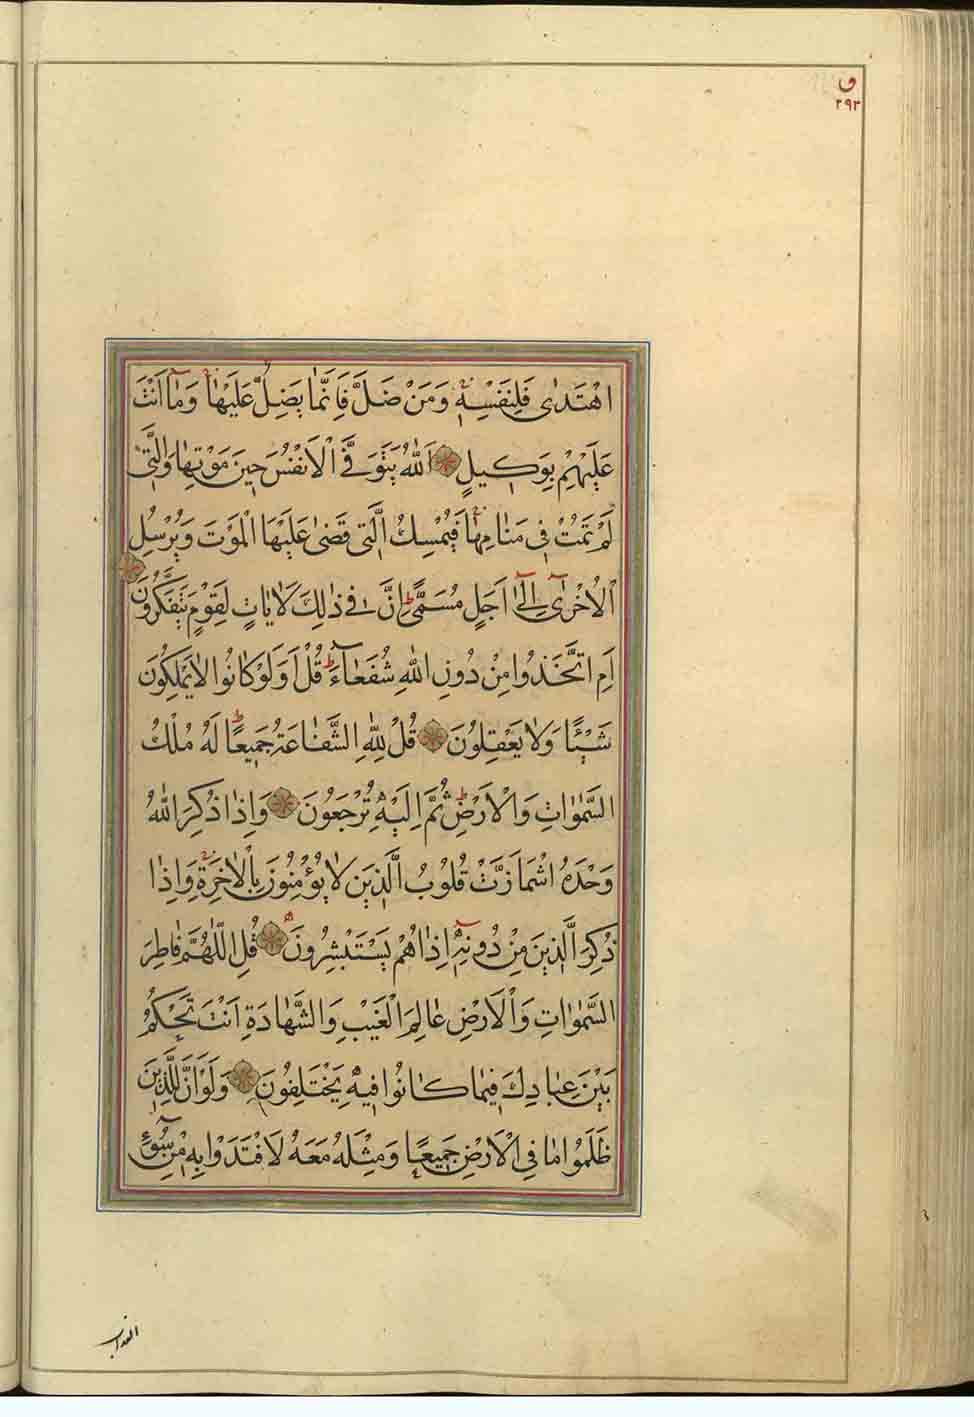 ق
٢٩٢
اهْتَدٰى فَلِنَفْسِهٖ وَمَنْ ضَلَّ فَاِنَّمٰا يَضِلُّ عَلَيْهٰا وَمٰا اَنْتَ
عَلَيْهِمْ بِوَكٖيلٍ اَللّٰهُ يَتَوَفَّى الْاَنْفُسَ حٖينَ مَوْتِهٰا وَالَّتٖى
لَمْ تَمُتْ فٖى مَنٰامِهٰا فَيُمْسِكُ الَّتٖى قَضٰى عَلَيْهَا الْمَوْتَ وَيُرْسِلُ
الْاُخْرٰى اِلٰى اَجَلٍ مُسَمًّى ط اِنَّ فٖى ذٰلِكَ لَاٰيٰاتٍ لِقَوْمٍ يَتَفَكَّرُونَ
اَمِ اتَّخَذُوا مِنْ دُونِ اللّٰهِ شُفَعٰاءَ ط قُلْ اَوَلَوْ كٰانُوا لٰا يَمْلِكُونَ
شَيْئًا وَلٰا يَعْقِلُونَ قُلْ لِلّٰهِ الشَّفٰاعَةُ جَمٖيعًا ط لَهُ مُلْكُ
السَّمٰوٰاتِ وَالْاَرْضِ ط ثُمَّ اِلَيْهِ تُرْجَعُونَ وَاِذٰا ذُكِرَ اللّٰهُ
وَحْدَهُ اشْمَاَزَّتْ قُلُوبُ الَّذٖينَ لٰا يُؤْمِنُونَ بِالْاٰخِرَةِ وَاِذٰا
ذُكِرَ الَّذٖينَ مِنْ دُونِهٖ اِذٰا هُمْ يَسْتَبْشِرُونَ قُلِ اللّٰهُمَّ فٰاطِرَ
السَّمٰوٰاتِ وَالْاَرْضِ عٰالِمَ الْغَيْبِ وَالشَّهٰادَةِ اَنْتَ تَحْكُمُ
بَيْنَ عِبٰادِكَ فٖيمٰا كٰانُوا فٖيهِ يَخْتَلِفُونَ وَلَوْ اَنَّ لِلَّذٖينَ
ظَلَمُوا مٰا فِى الْاَرْضِ جَمٖيعًا وَمِثْلَهُ مَعَهُ لَافْتَدَوْا بِهٖ مِنْ سُوءِ
العذاب